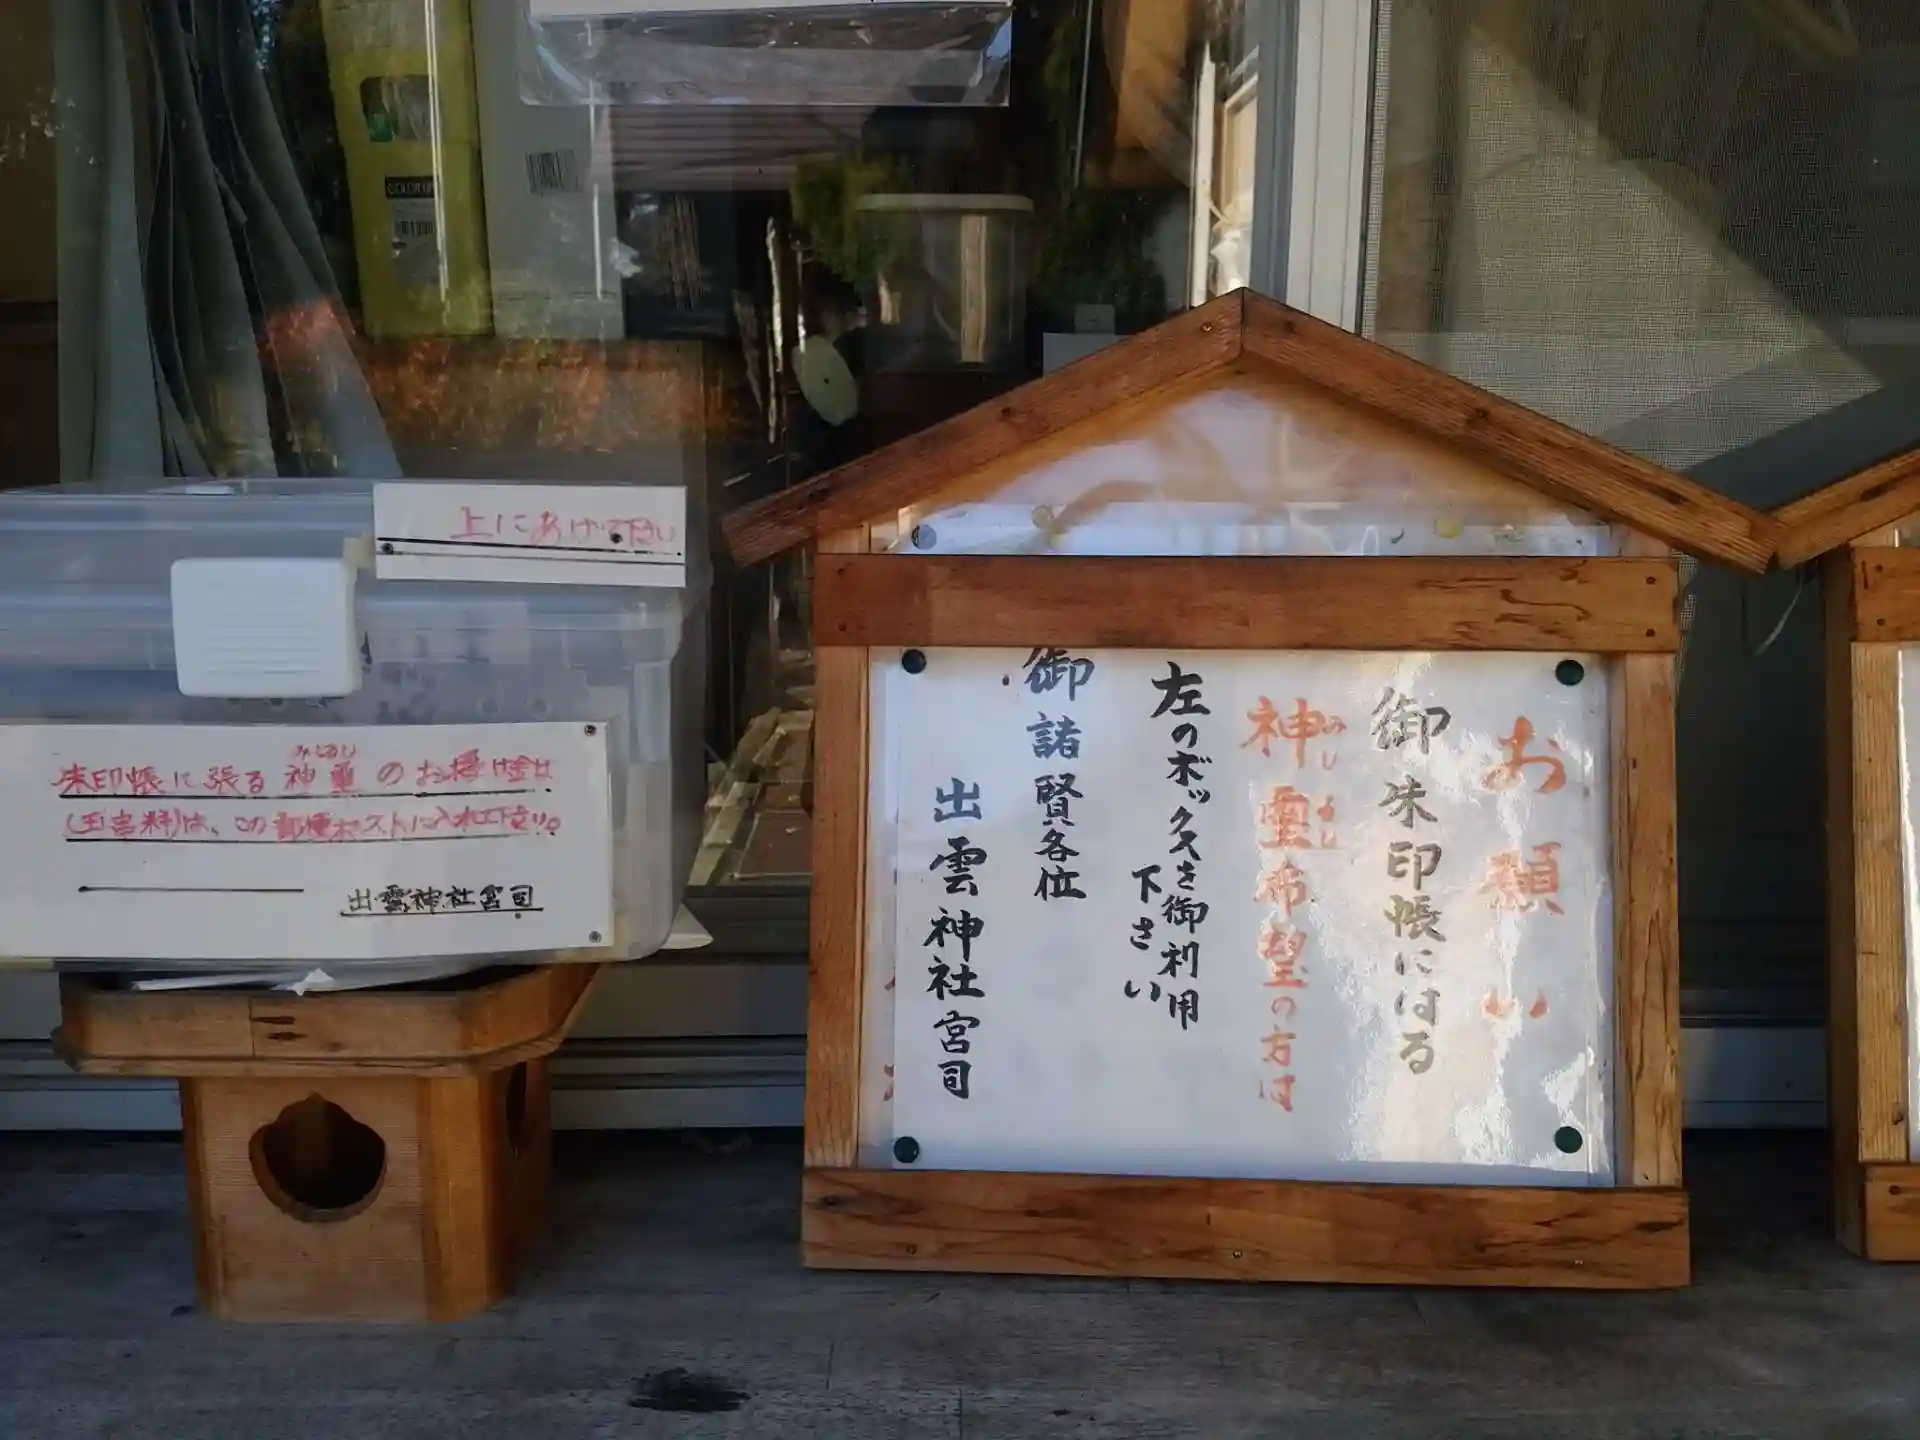 上にあけて下さい
朱印帳に張る神璽のお授け金は
みしるし
(玉串料)は、この郵便ポストに入れて下さい。
出雲神社宮司
お願い
御朱印帳にはる
神璽希望の方は
みしるし
左のボックスを御利用
下さい
御諸賢各位
出雲神社宮司